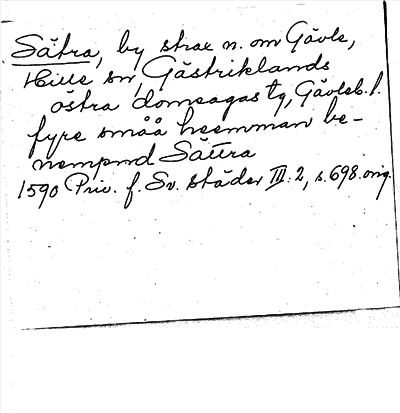 Sätra, by strax n. om Gävle,
Hille sn, Gästriklands
östra domsagas tg, Gävleb. l.
fyre småå heemman be-
nempnd Sätra
1590 Priv. f. Sv. städer III: 2, s. 698. orig.